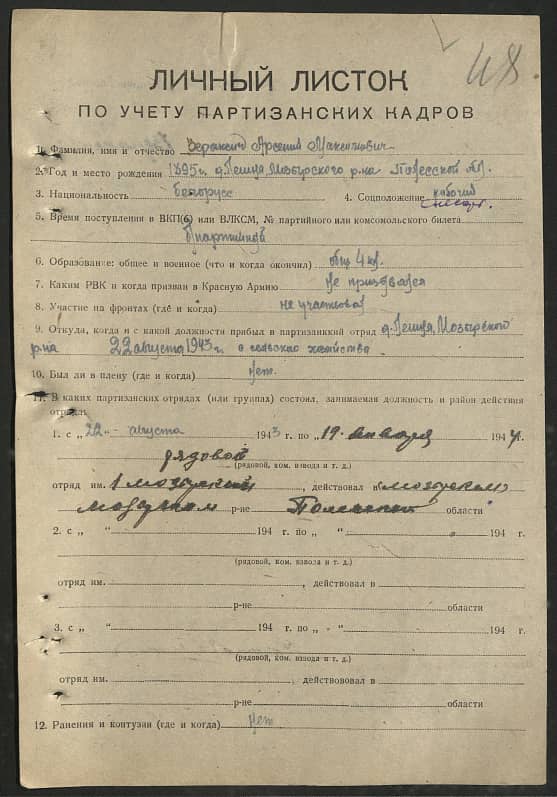 48.
ЛИЧНЫЙ ЛИСТОК
ПО УЧЕТУ ПАРТИЗАНСКИХ КАДРОВ
1. Фамилия, имя и отчество Арсений Максимович
2. Год и место рождения 1895 г. д. Мозырского р-на Полесской обл.
3. Национальность белорусс 4. Соцположение рабочий
5. Время поступления в ВКП(б) или ВЛКСМ, № партийного или комсомольского билета
б/партийный
6. Образование: общее и военное (что и когда окончил) общ 4 кл.
7. Каким РВК и когда призван в Красную Армию не призывался
8. Участие на фронтах (где и когда) не участвовал
9. Откуда, когда и с какой должности прибыл в партизанский отряд д. Мозырского
р-на 22 августа 1943 г. с сельского хозяйства
10. Был ли в плену (где и когда) нет
11. В каких партизанских отрядах (или группах) состоял, занимаемая должность и район действия
отряда:
1. с „22„ августа 1943 г. по „19„ января 1944 г.
рядовой
(рядовой, ком. взвода и т. д.)
отряд им. 1 мозырский, действовал в мозырском
мозырском р-не Полесской области
2. с „ “ 194 г. по „ “ 194 г.
(рядовой, ком. взвода и т. д.)
отряд им. , действовал в
р-не области
3. с „ “ 194 г. по „ “ 194 г.
(рядовой, ком. взвода и т. д.)
отряд им. , действовал в
р-не области
12. Ранения и контузии (где и когда) Нет